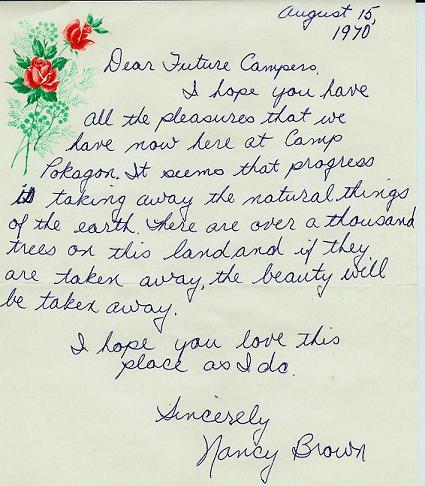 August 15,
1970
Dear Future Campers,
I hope you have
all the pleasures that we
have now here at Camp
Pokagon. It seems that progress
is taking away the natural things
of the earth. There are over a thousand
trees on this land and if they
are taken away, the beauty will
be taken away.
I hope you love this
place as I do.
Sincerely
Nancy Brown